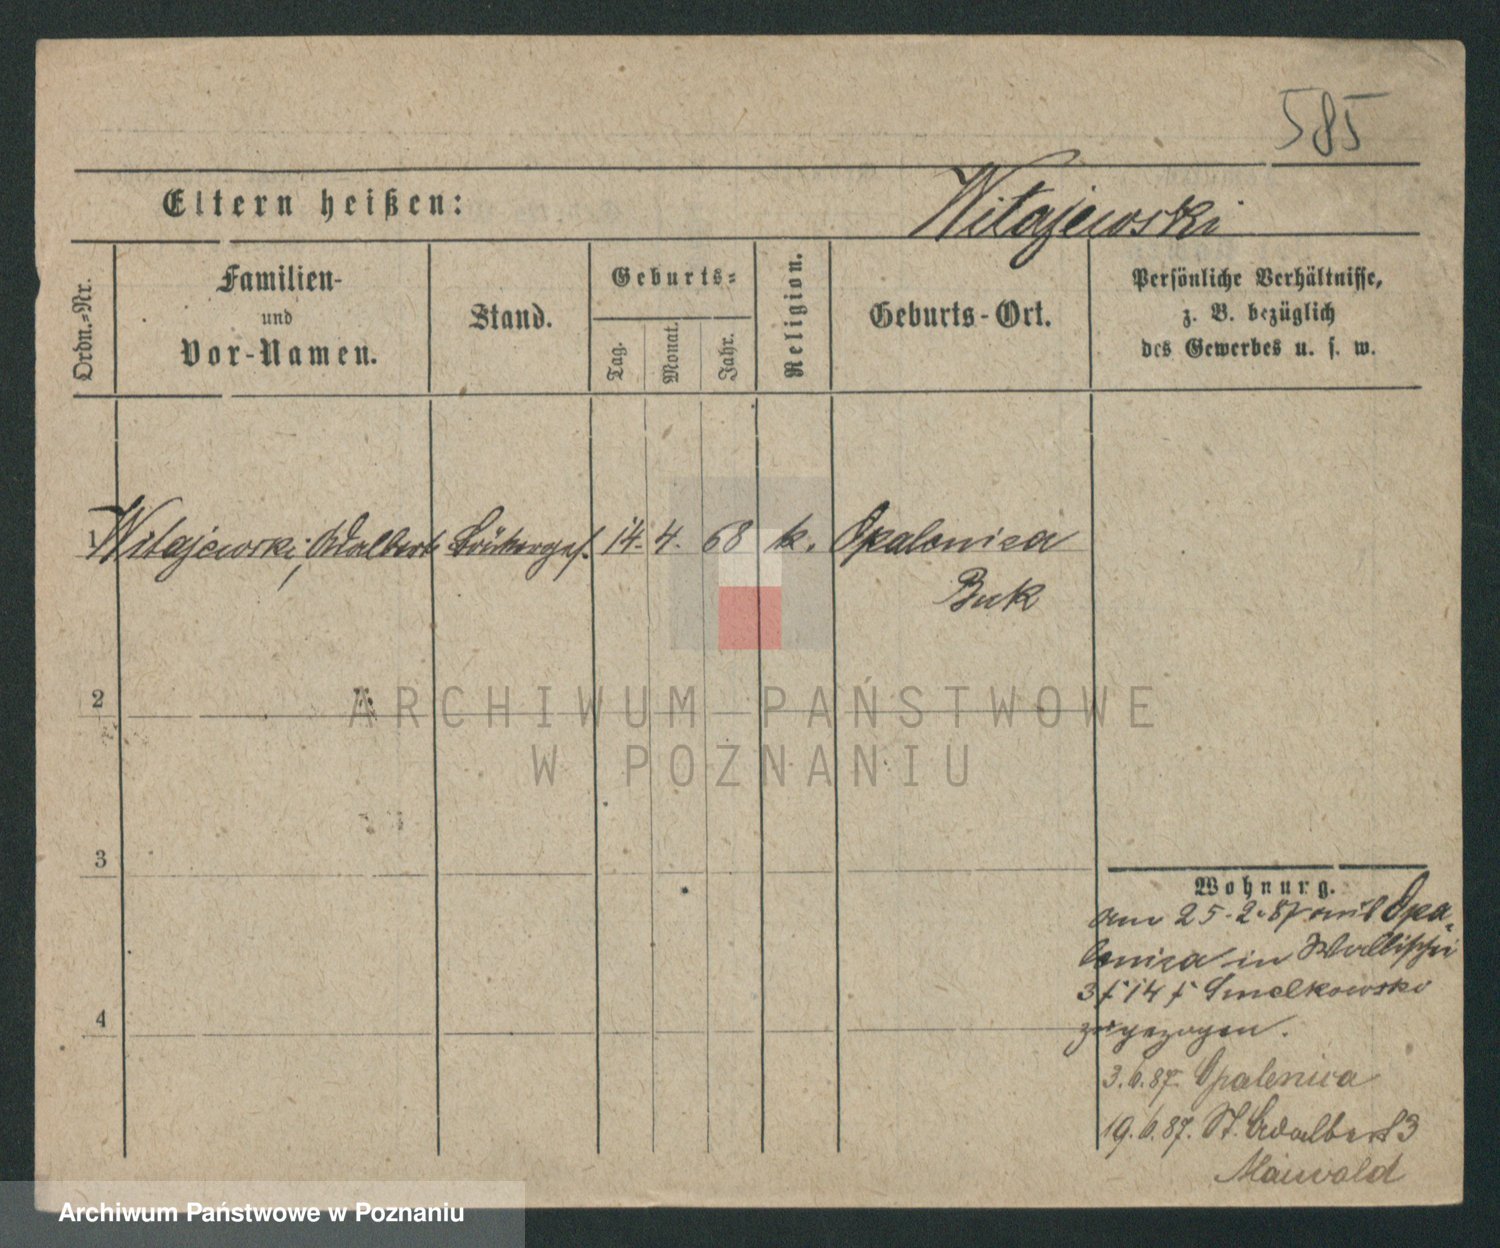 585
Eltern heißen: Witajewski
Ordn.-Nr.
Familien-
und
Vor-Namen.
Stand.
Geburts-
Tag.
Monat.
Jahr.
Religion.
Geburts-Ort.
Persönliche Verhältnisse,
z. B. bezüglich
des Gewerbes u. s. w.
1 Witajewski, Adalbert 14. 4. 68 k. Opalenica
Buk
2
ARCHIWUM PAŃSTWOWE
W POZNANIU
3
4
Wohnung.
am 25.2.87 aus Opa-
lenica in Wallischei
3 14 Smelkowski
zugezogen.
3.6.87. Opalenica
19.6.87. St. Adalbert 3
Maiwald
Archiwum Państwowe w Poznaniu